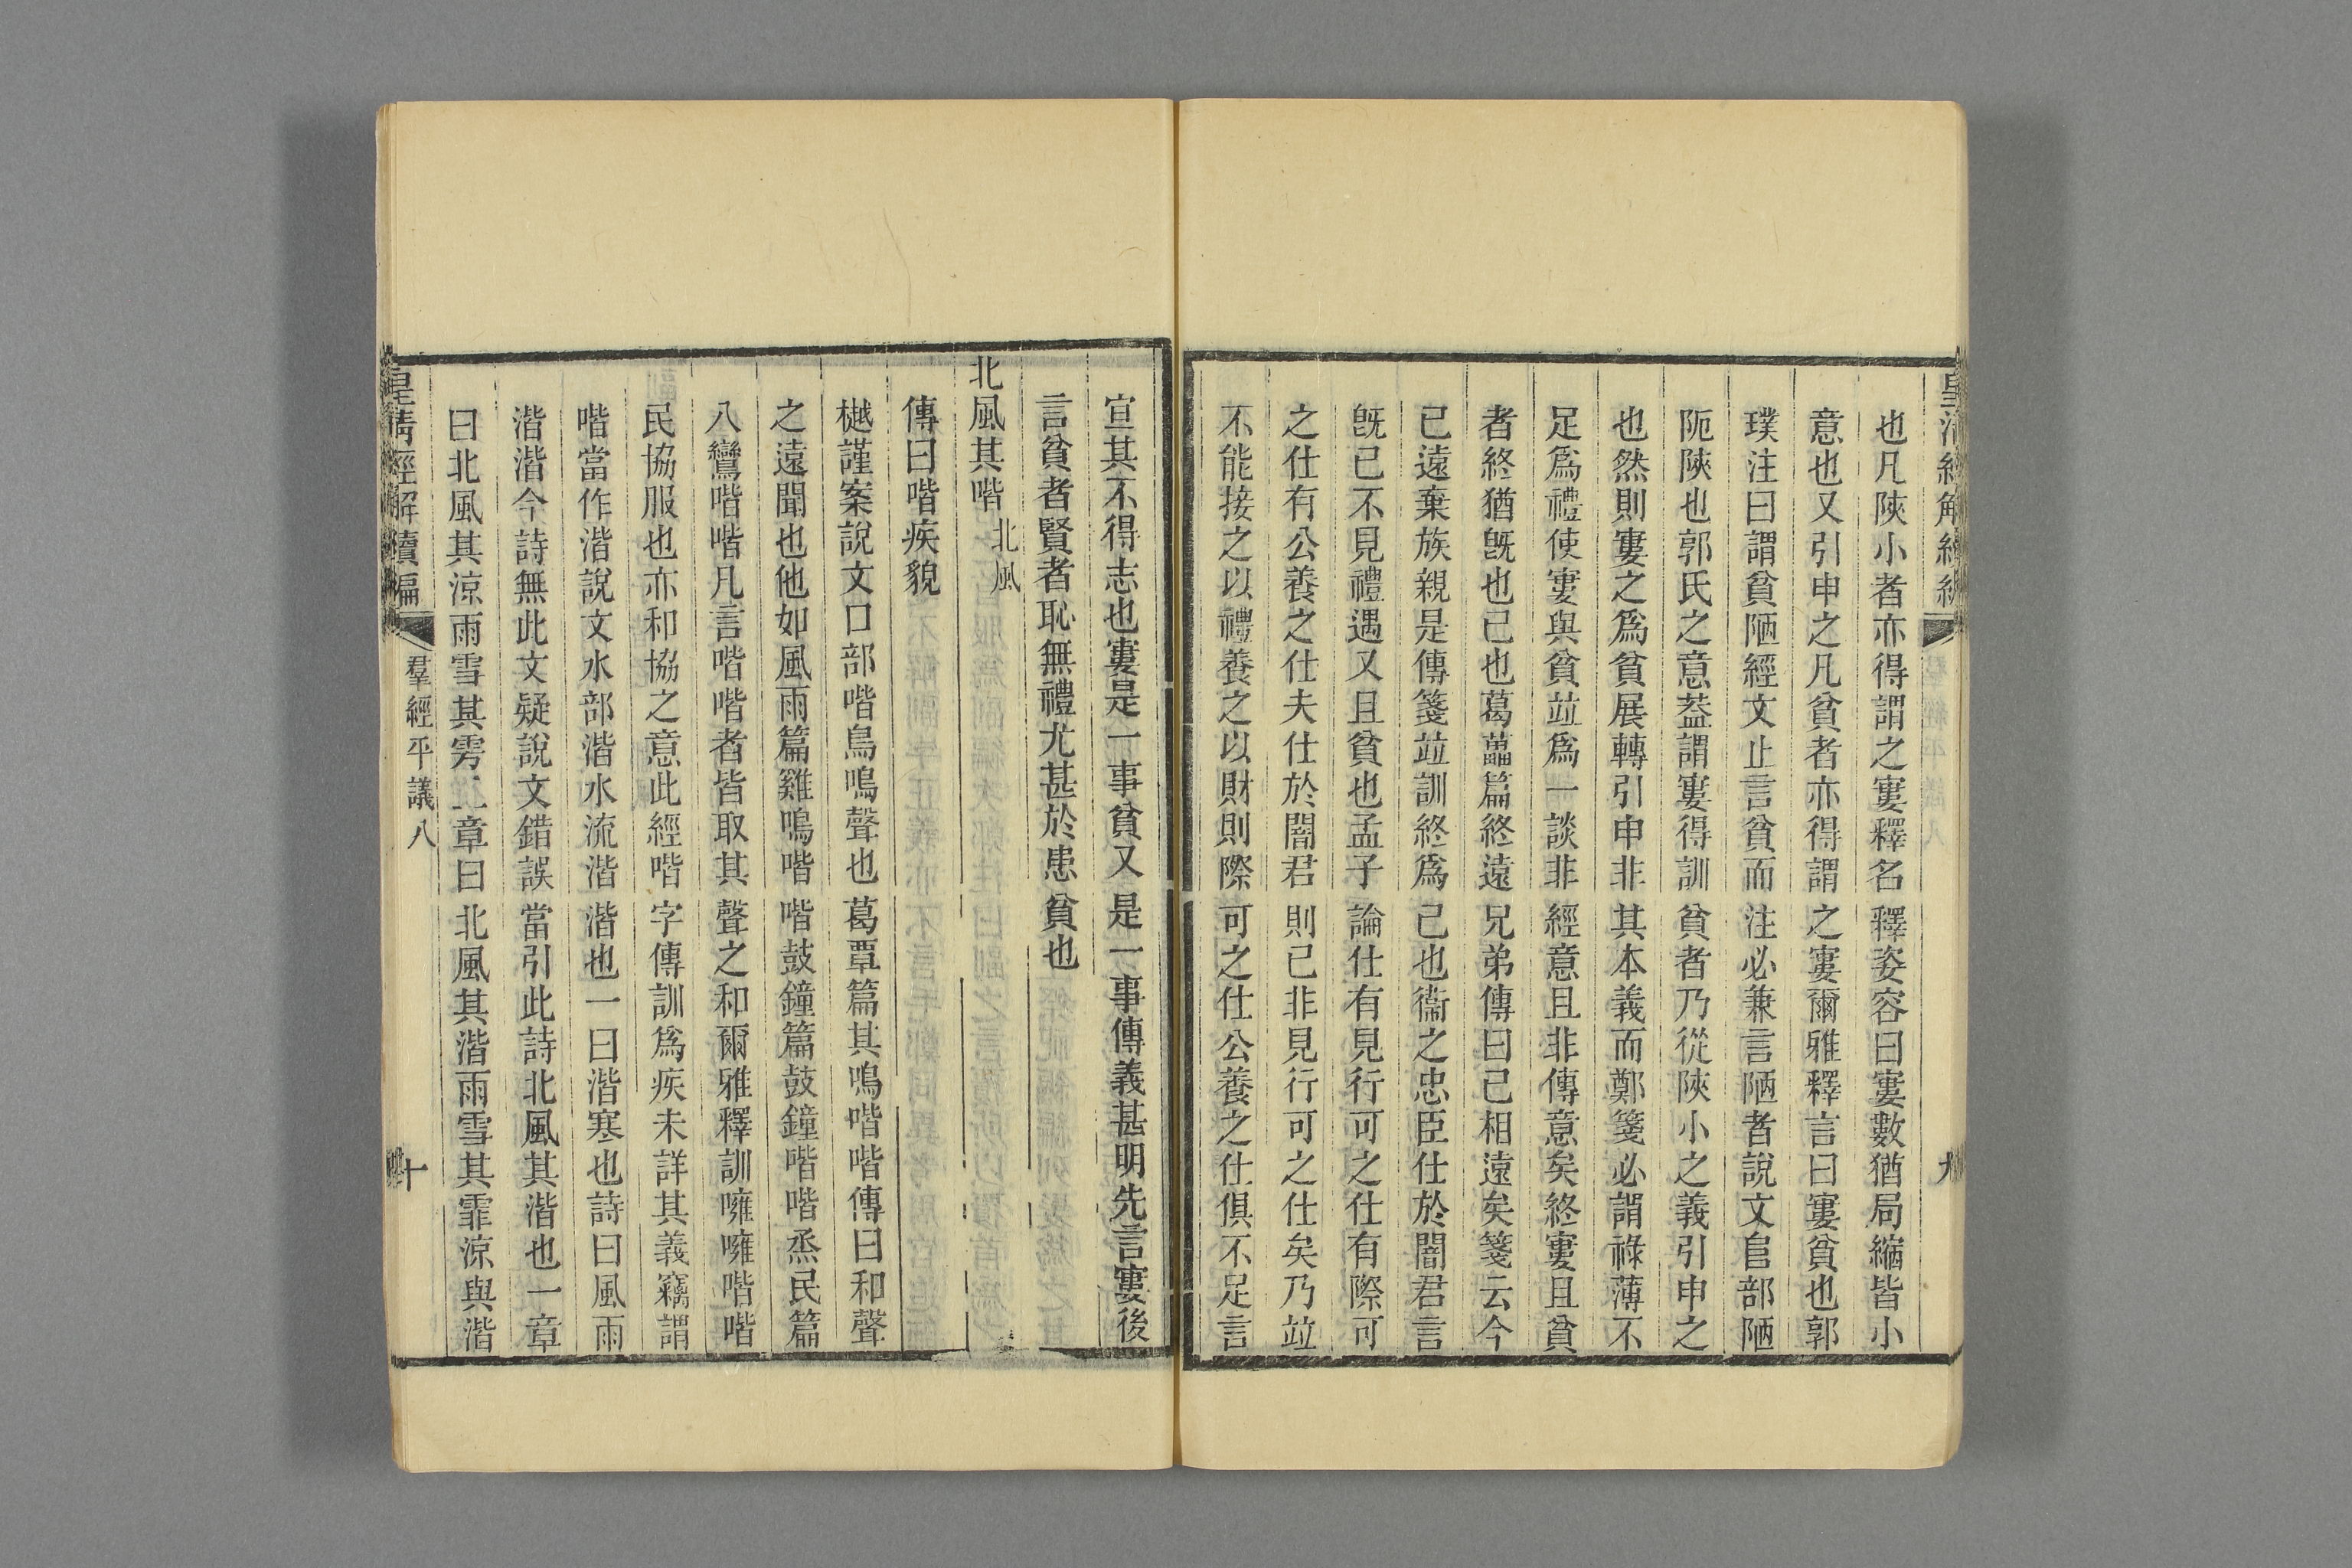 也凡陝小者亦得謂之寠釋名釋姿容曰寠數猶局縮皆小
意也又引申之凡貧者亦得謂之寠爾雅釋言曰寠貧也郭
璞注曰謂貧陋經文止言貧而注必兼言陋者說文𨸏部陋
阨陝也郭氏之意葢謂寠得訓貧者乃從陝小之義引申之
也然則寠之爲貧展轉引申非其本義而鄭箋必謂祿薄不
足爲禮使寠與貧竝爲一談非經意且非傳意矣終寠且貧
者終猶旣也己也葛藟篇終遠兄弟傳曰己相遠矣箋云今
已遠棄族親是傳箋竝訓終爲己也衞之忠臣仕於闇君言
旣已不見禮遇又且貧也孟子論仕有見行可之仕有際可
之仕有公養之仕夫仕於闇君則己非見行可之仕矣乃竝
不能接之以禮養之以財則際可之仕公養之仕俱不足言
宣其不得志也寠是一事貧又是一事傳義甚明先言寠後
言貧者賢者恥無禮尤甚於患貧也
北風其喈 北風
傳曰喈疾貌
樾謹案說文口部喈鳥鳴聲也葛覃篇其鳴喈喈傳曰和聲
之遠聞也他如風雨篇雞鳴喈喈鼓鐘篇鼓鐘喈喈烝民篇
八鸞喈喈凡言喈喈者皆取其聲之和爾雅釋訓噰噰喈喈
民協服也亦和協之意此經喈字傳訓爲疾未詳其義竊謂
喈當作湝說文水部湝水流湝湝也一曰湝寒也詩曰風雨
湝湝今詩無此文疑說文錯誤當引此詩北風其湝也一章
曰北風其涼雨雪其雱二章曰北風其湝雨雪其霏涼與湝
皇淸經解續編
羣經平議八
十